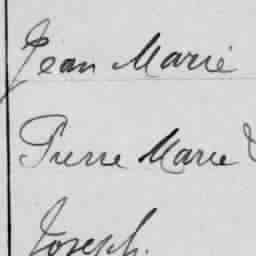 Jean Marie
Pierre Marie
Joseph.